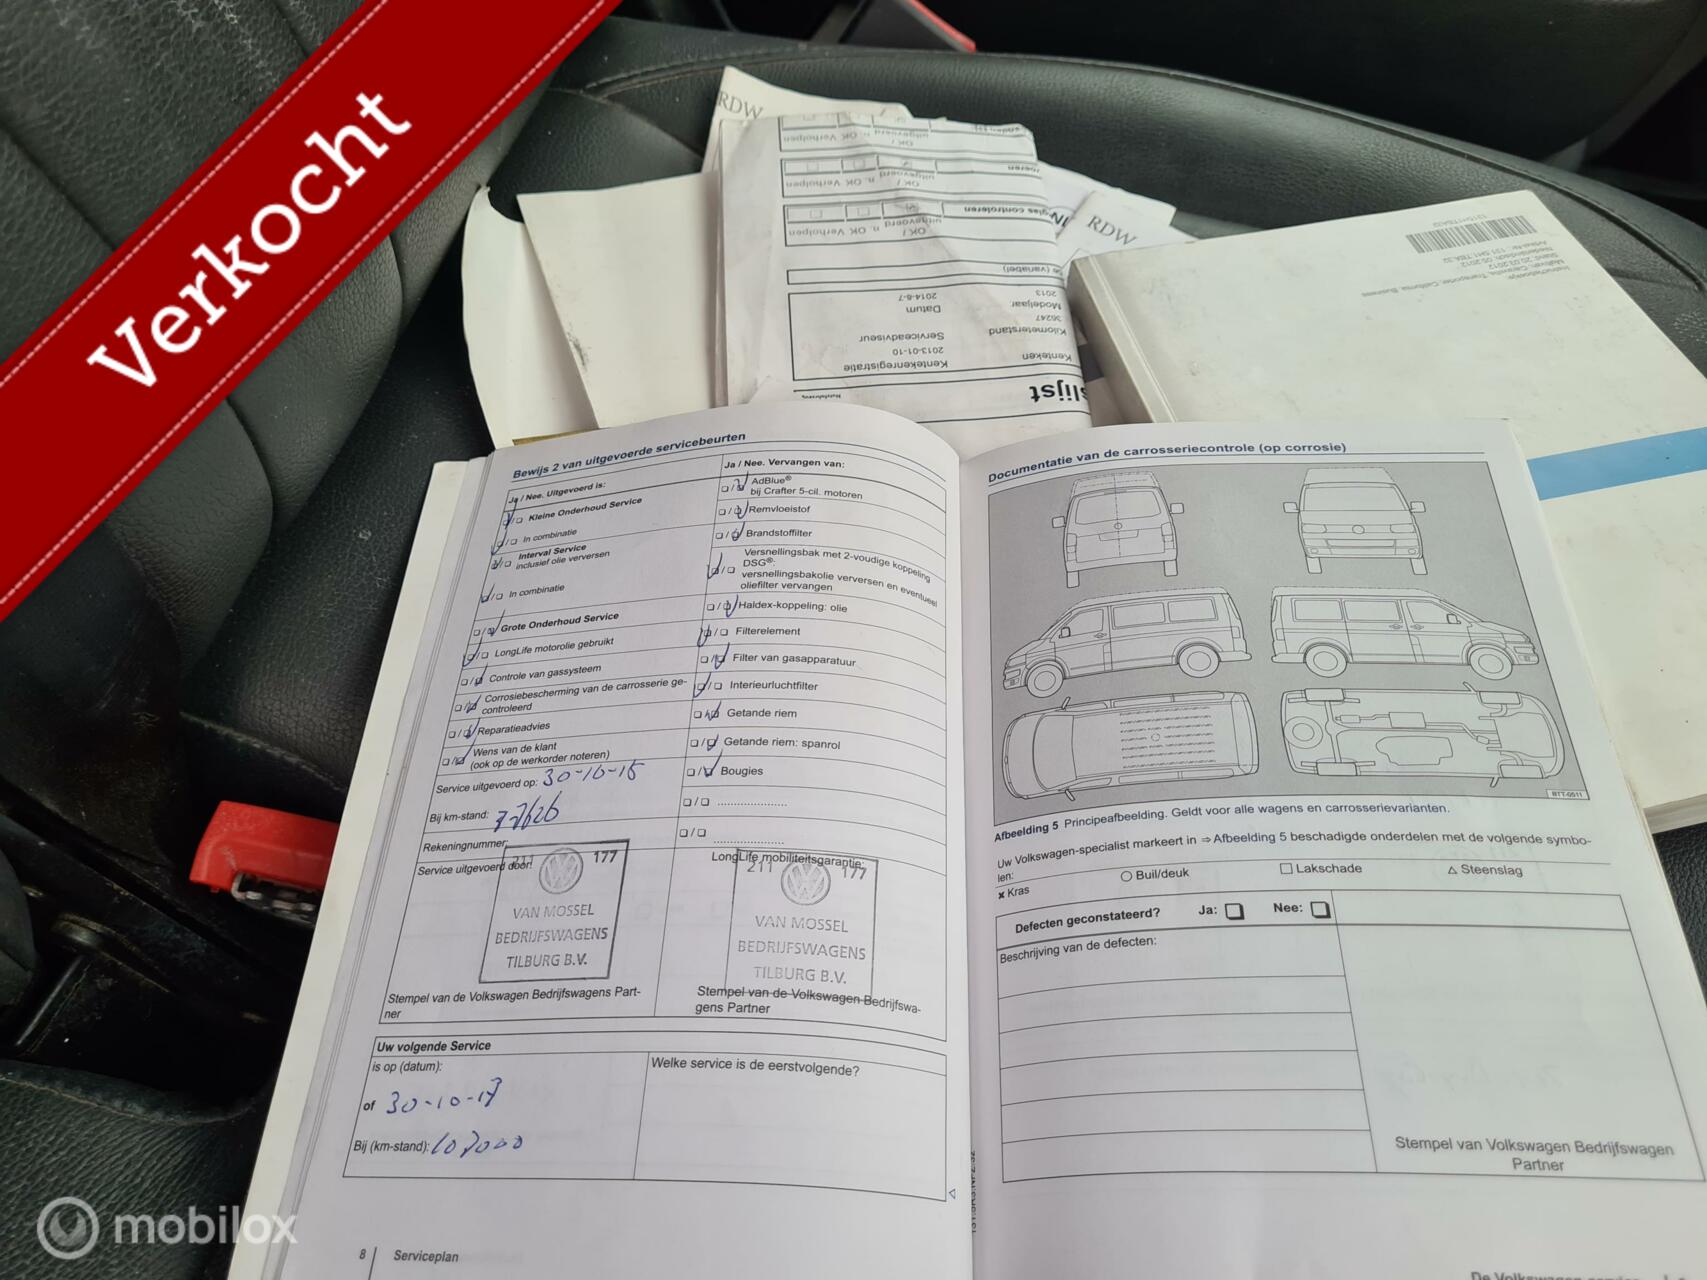 Verkocht
RDW
RDW
OK / uitgevoerd n. OK Verholpen
OK / uitgevoerd n. OK Verholpen
OK / uitgevoerd n. OK Verholpen
glas controleren
(variabel)
2013
Modeljaar
2014-8-7
Datum
36247
Kilometerstand
Serviceadviseur
2013-01-10
Kenteken
Kentekenregistratie
slijst
Instructieboekje
Multivan, Caravelle, Transporter, California Business
Stand: 20.03.2012
Nederlandisch: 05.2012
Bewijs 2 van uitgevoerde servicebeurten
Ja / Nee. Uitgevoerd is:
Kleine Onderhoud Service
In combinatie
Interval Service
inclusief olie verversen
In combinatie
Grote Onderhoud Service
LongLife motorolie gebruikt
Controle van gassysteem
Corrosiebescherming van de carrosserie ge-
controleerd
Reparatieadvies
Wens van de klant
(ook op de werkorder noteren)
Service uitgevoerd op: 30-10-15
Bij km-stand: 77626
Rekeningnummer:
Service uitgevoerd door:
211 177
VAN MOSSEL
BEDRIJFSWAGENS
TILBURG B.V.
Stempel van de Volkswagen Bedrijfswagens Part-
ner
Ja / Nee. Vervangen van:
AdBlue®
bij Crafter 5-cil. motoren
Remvloeistof
Brandstoffilter
Versnellingsbak met 2-voudige koppeling
DSG®:
versnellingsbakolie verversen en eventueel
oliefilter vervangen
Haldex-koppeling: olie
Filterelement
Filter van gasapparatuur
Interieurluchtfilter
Getande riem
Getande riem: spanrol
Bougies
LongLife mobiliteitsgarantie:
211 177
VAN MOSSEL
BEDRIJFSWAGENS
TILBURG B.V.
Stempel van de Volkswagen Bedrijfswa-
gens Partner
Uw volgende Service
is op (datum):
of 30-10-17
Bij (km-stand): 107000
Welke service is de eerstvolgende?
8 Serviceplan
Documentatie van de carrosseriecontrole (op corrosie)
BTT-0511
Afbeelding 5 Principeafbeelding. Geldt voor alle wagens en carrosserievarianten.
Uw Volkswagen-specialist markeert in ⇒ Afbeelding 5 beschadigde onderdelen met de volgende symbo-
len:
× Kras
○ Buil/deuk
□ Lakschade
△ Steenslag
Defecten geconstateerd?
Ja: □
Nee: □
Beschrijving van de defecten:
Stempel van Volkswagen Bedrijfswagen
Partner
mobilox